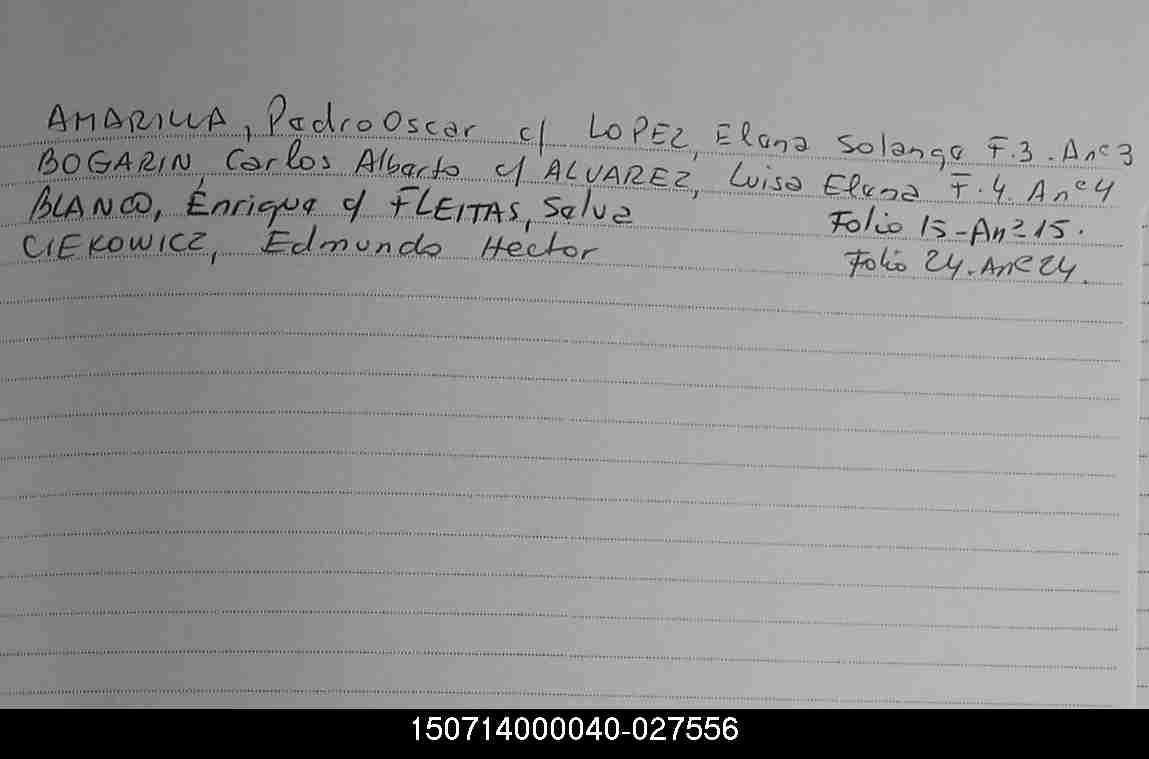 AMARILLA, Pedro Oscar c/ LOPEZ, Elena Solange F.3. Anº3
BOGARIN, Carlos Alberto c/ ALVAREZ, Luisa Elena F.4. Anº4
BLANCO, Enrique c/ FLEITAS, Salva Folio 15-Anº15.
CIEKOWICZ, Edmundo Hector Folio 24. Anº24.
150714000040-027556